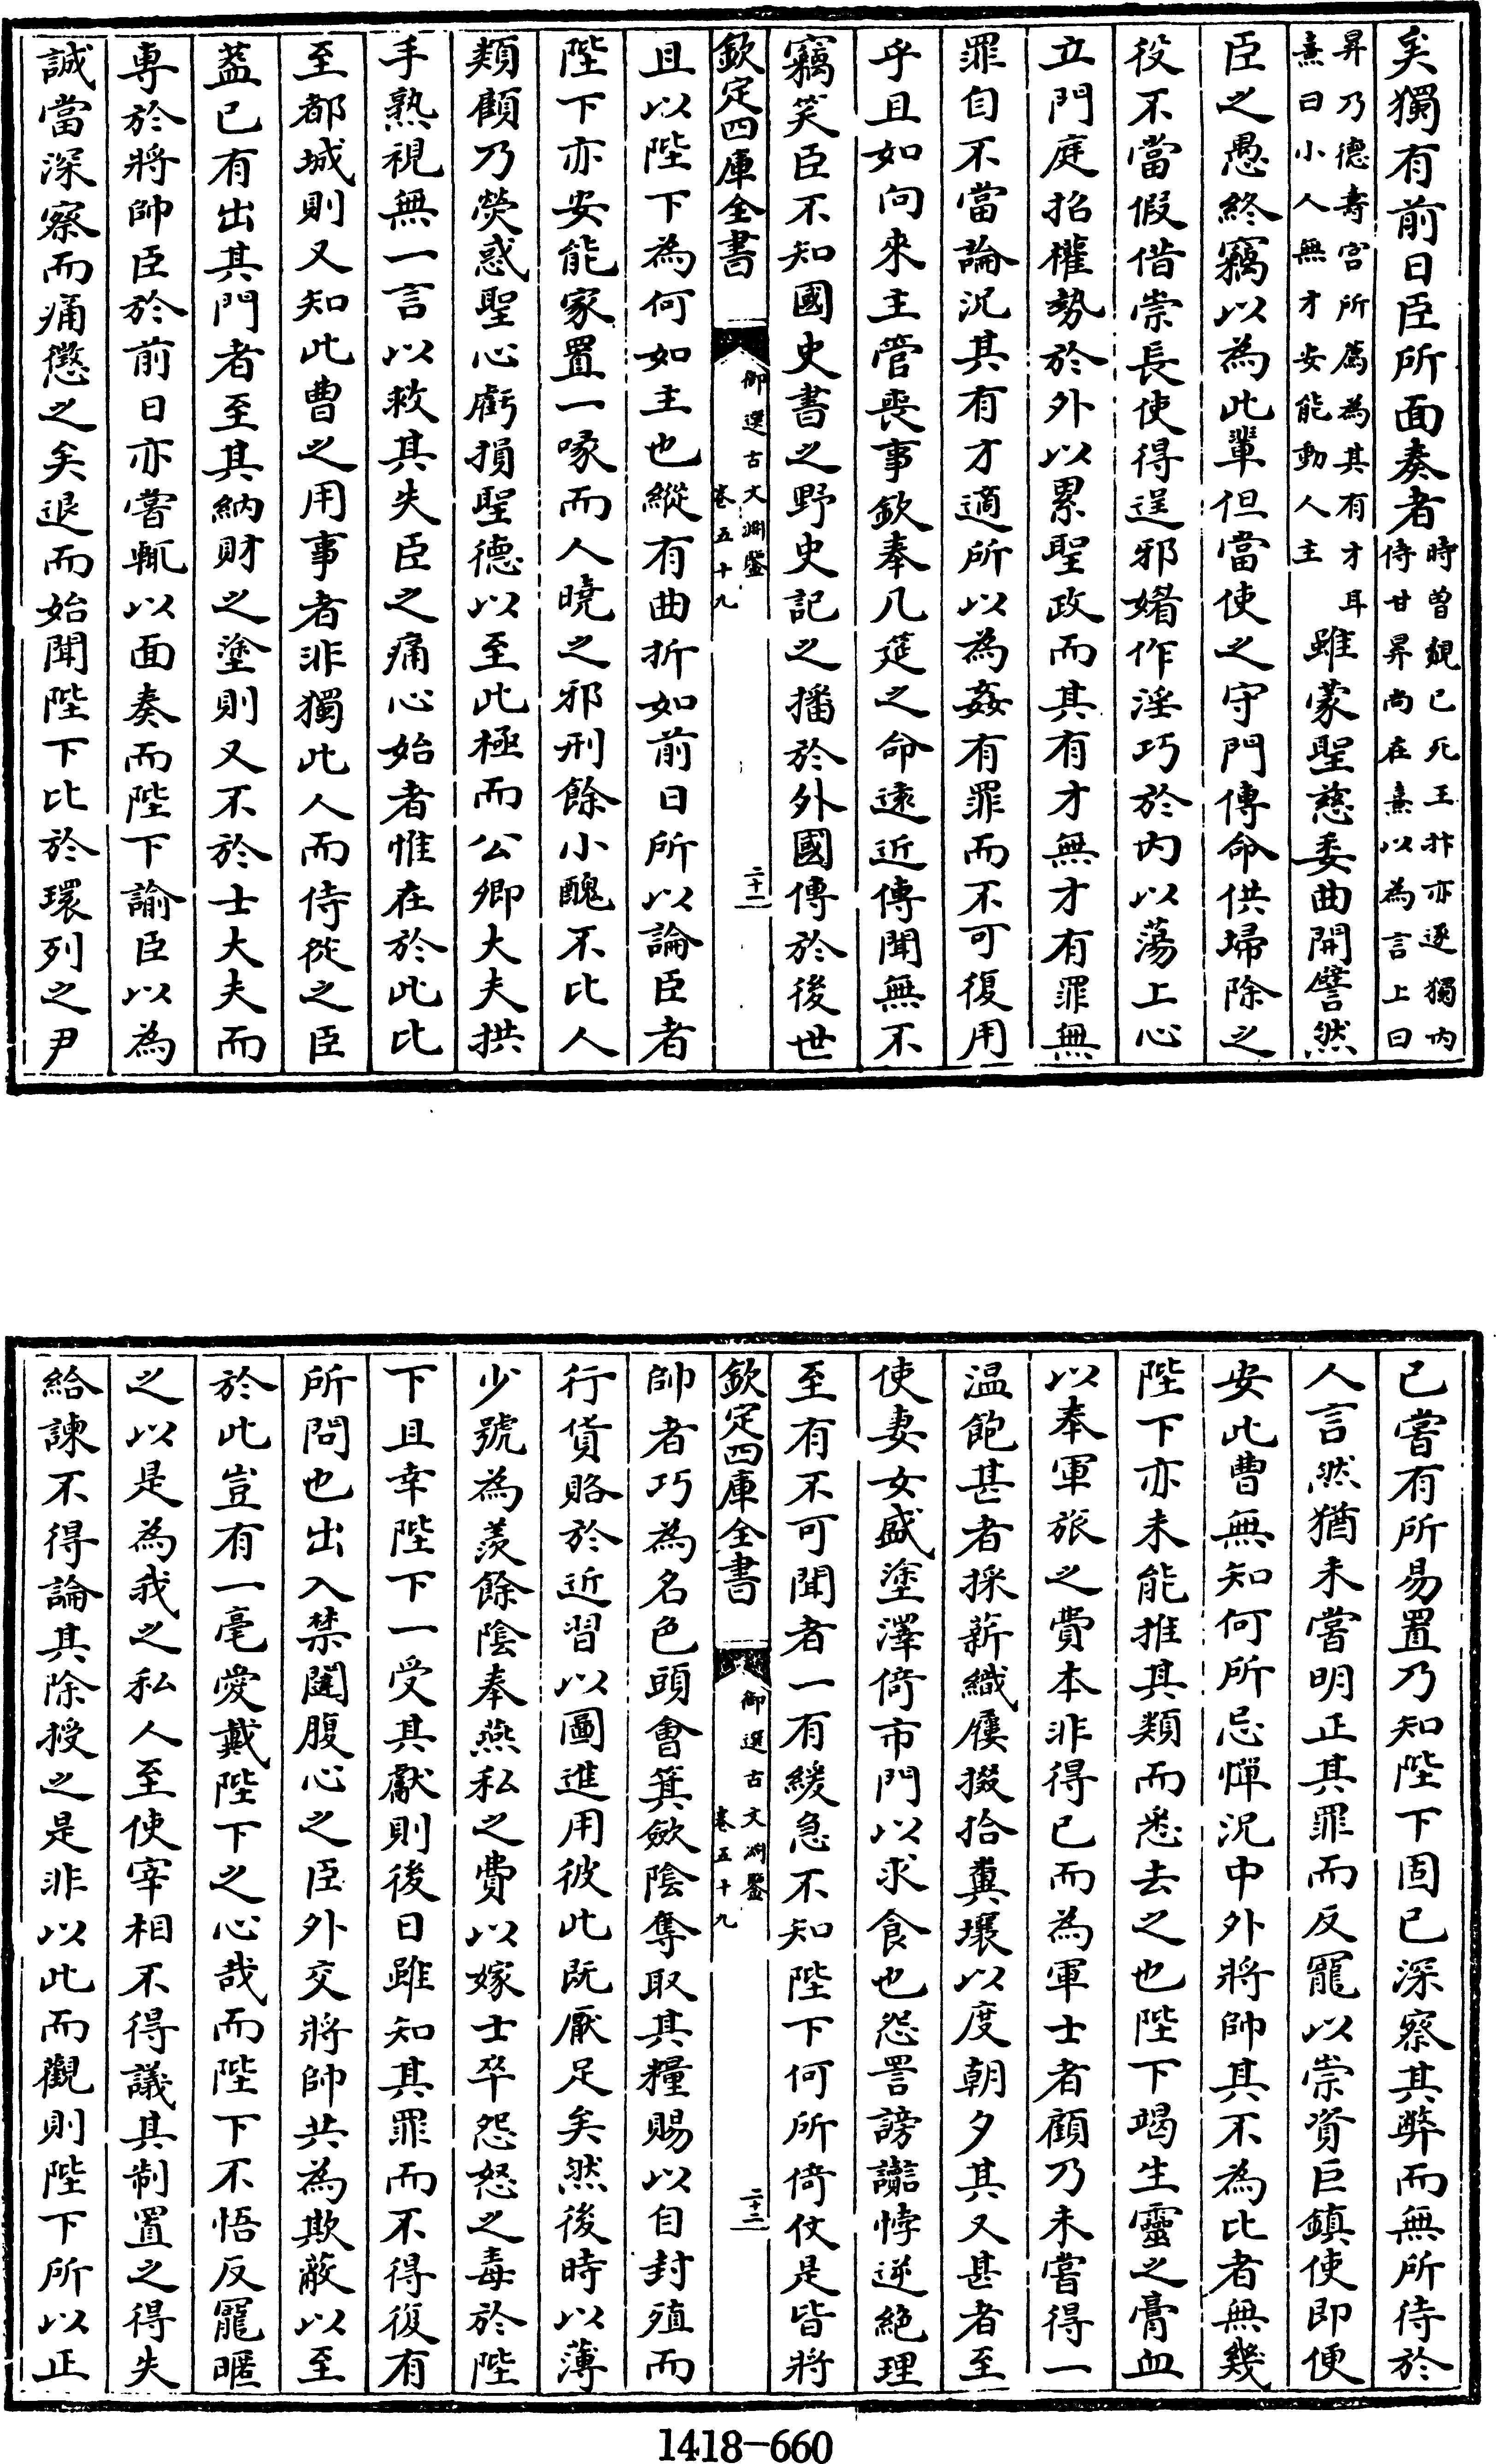 矣獨有前日臣所面奏者時曽覿已死王抃亦逐獨内侍甘昇尚在熹以為言上曰
昇乃德壽宫所薦為其有才耳熹曰小人無才安能動人主雖蒙聖慈委曲開譬然
臣之愚終竊以為此輩但當使之守門傳命供埽除之
役不當假借崇長使得逞邪媚作淫巧於内以蕩上心
立門庭招權勢於外以累聖政而其有才無才有罪無
罪自不當論况其有才適所以為姦有罪而不可復用
乎且如向來主管喪事欽奉几筵之命逺近傳聞無不
竊笑臣不知國史書之野史記之播於外國傳於後世
欽定四庫全書
御選古文淵鑒
卷五十九
二十二
且以陛下為何如主也縱有曲折如前日所以論臣者
陛下亦安能家置一喙而人曉之邪刑餘小醜不比人
類顧乃熒惑聖心虧損聖德以至此極而公卿大夫拱
手熟視無一言以救其失臣之痛心始者惟在於此比
至都城則又知此曹之用事者非獨此人而侍從之臣
葢已有出其門者至其納財之塗則又不於士大夫而
専於將帥臣於前日亦嘗輒以面奏而陛下諭臣以為
誠當深察而痛懲之矣退而始聞陛下比於環列之尹
已嘗有所易置乃知陛下固已深察其弊而無所待於
人言然猶未嘗明正其罪而反寵以崇資巨鎮使即便
安此曹無知何所忌憚况中外將帥其不為比者無幾
陛下亦未能推其類而悉去之也陛下竭生靈之膏血
以奉軍旅之費本非得已而為軍士者顧乃未嘗得一
温飽甚者採薪織屨掇拾糞壤以度朝夕其又甚者至
使妻女盛塗澤倚市門以求食也怨詈謗讟悖逆絶理
至有不可聞者一有緩急不知陛下何所倚仗是皆將
欽定四庫全書
御選古文淵鑒
卷五十九
二十三
帥者巧為名色頭會箕斂陰奪取其糧賜以自封殖而
行貨賂於近習以圖進用彼此既厭足矣然後時以薄
少號為羨餘隂奉燕私之費以嫁士卒怨怒之毒於陛
下且幸陛下一受其獻則後日雖知其罪而不得復有
所問也出入禁闥腹心之臣外交將帥共為欺蔽以至
於此豈有一毫愛戴陛下之心哉而陛下不悟反寵暱
之以是為我之私人至使宰相不得議其制置之得失
給諫不得論其除授之是非以此而觀則陛下所以正
1418-660